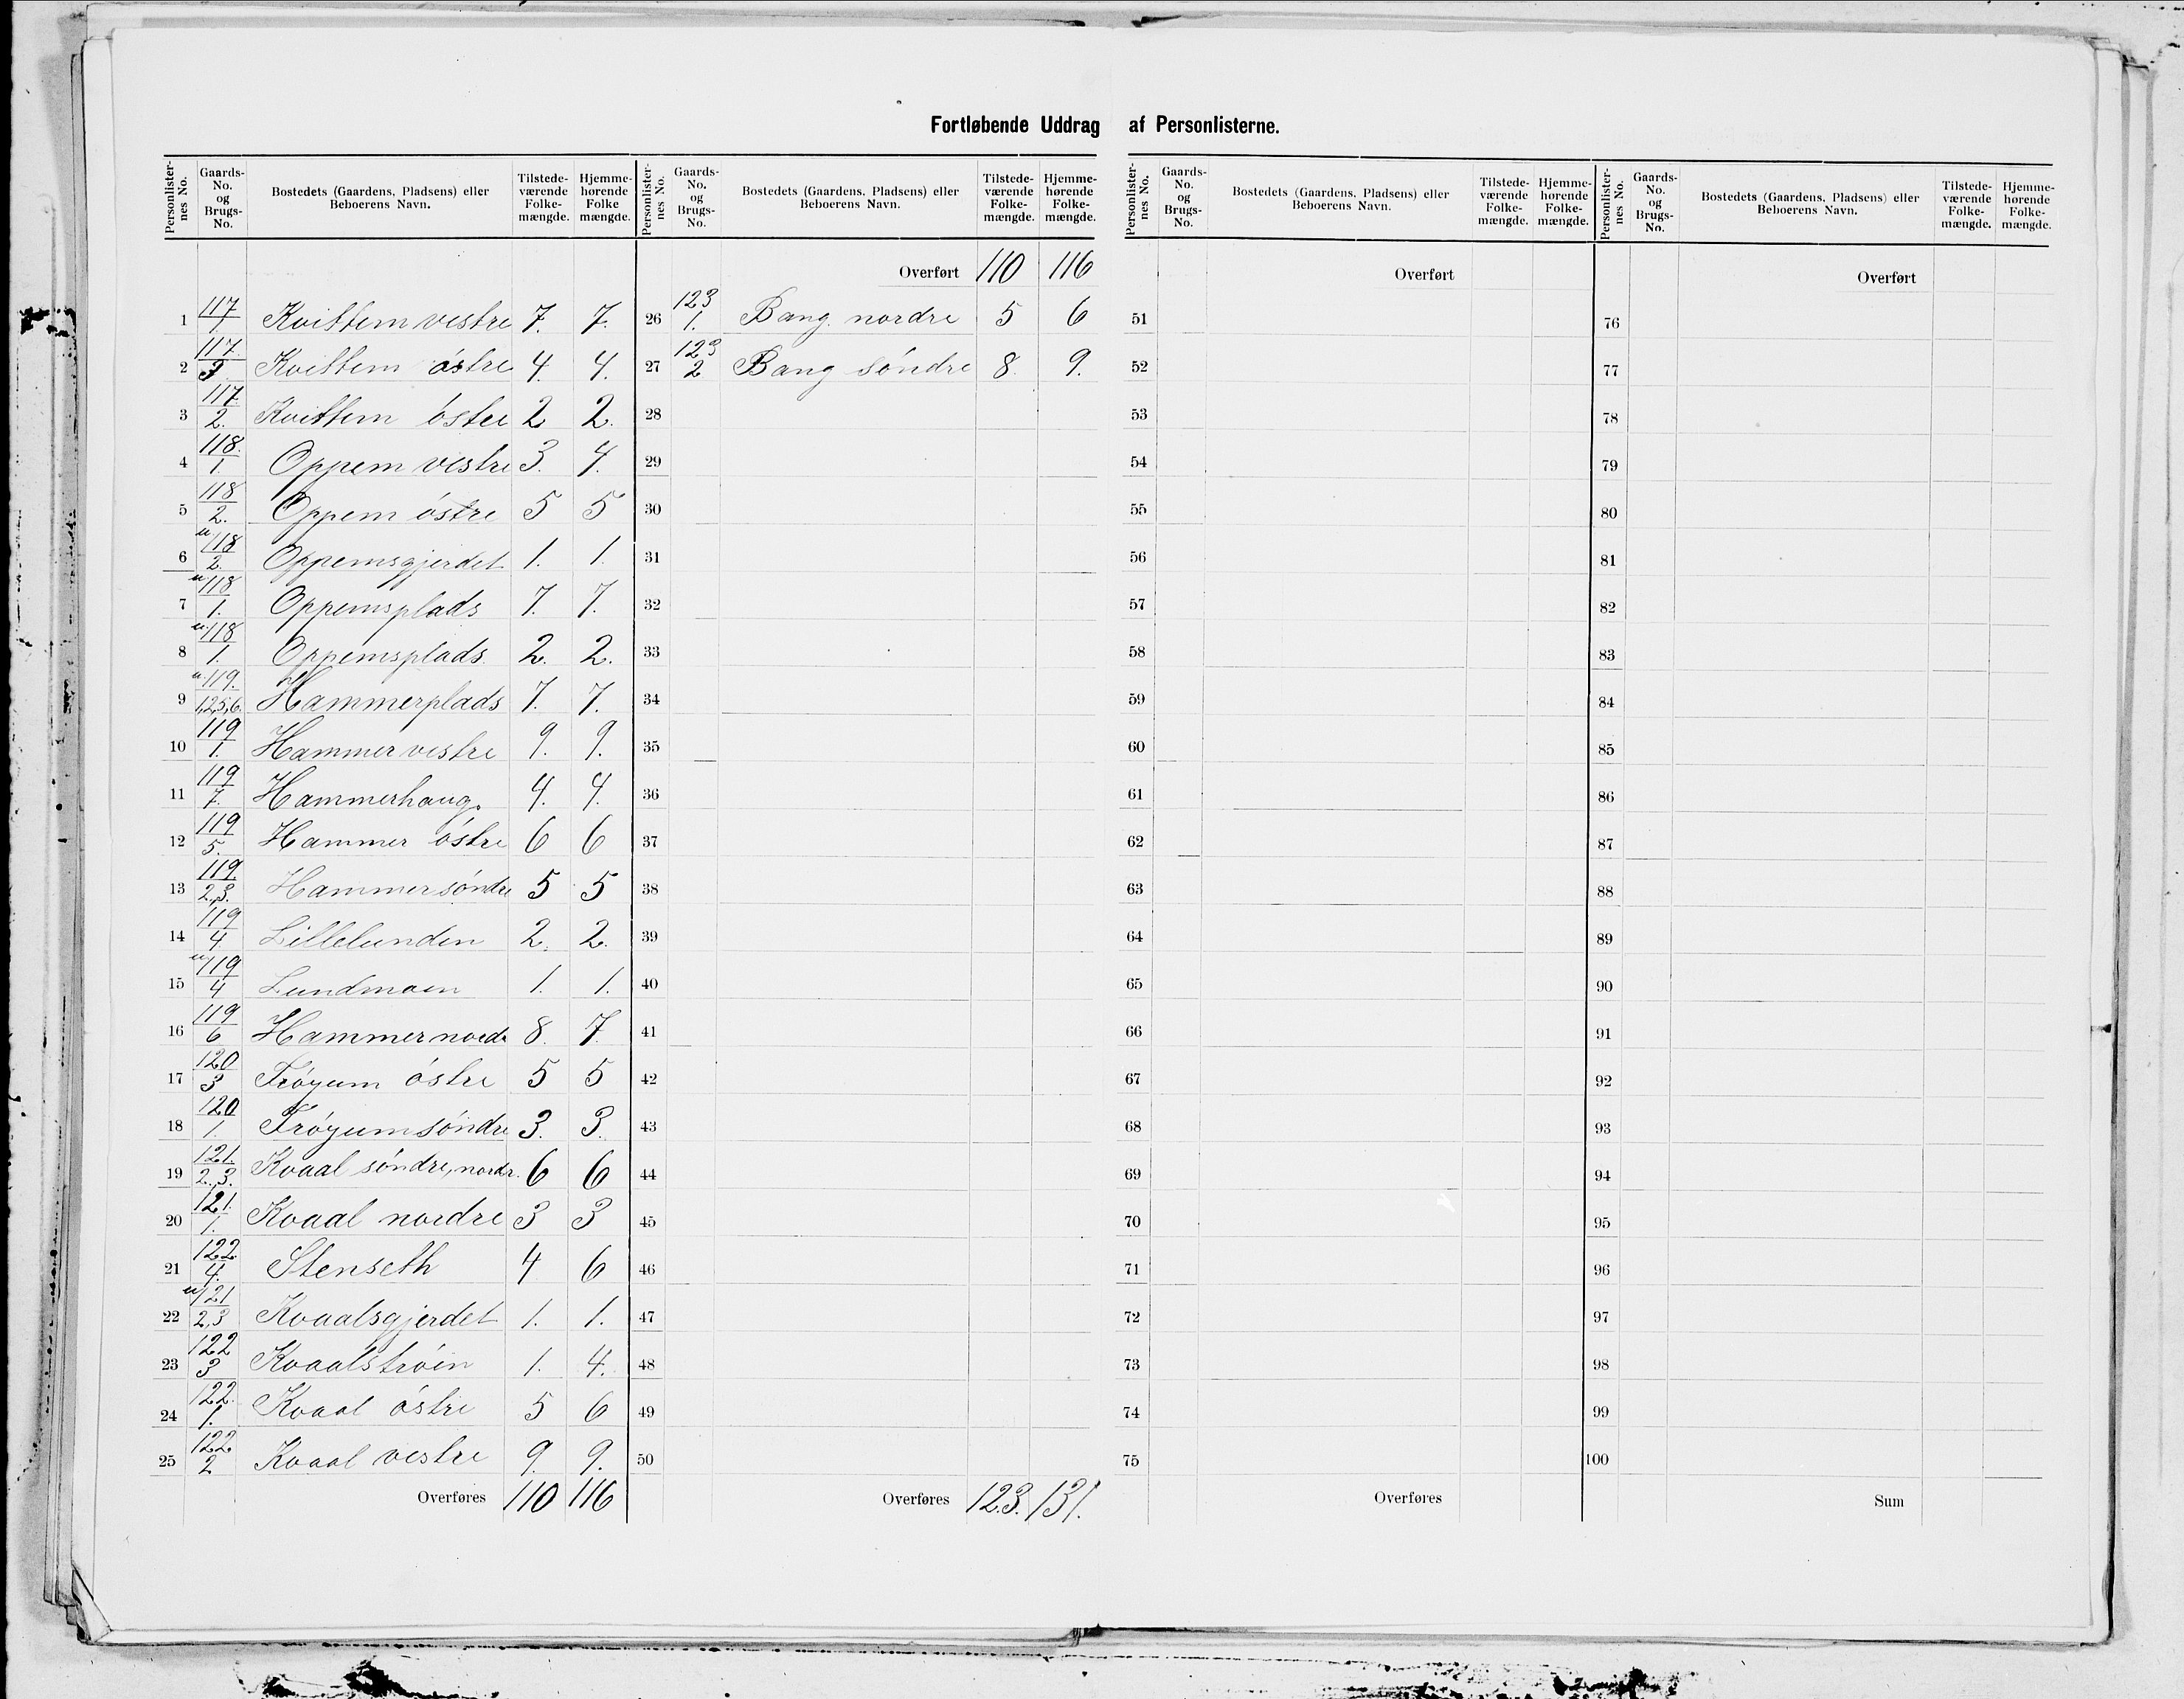 Fortløbende Uddrag af Personlisterne.
Personlister-nes No. | Gaards-No. og Brugs-No. | Bostedets (Gaardens, Pladsens) eller Beboerens Navn. | Tilstede-værende Folke-mængde. | Hjemme-hørende Folke mængde.
1 117/1. Kvittem vestre 7. 7.
2 117./3 Kvittem østre 4. 4.
3 117./2. Kvittem östre 2 2.
4 118./1. Oppem vestre 3. 4.
5 118/2. Oppem östre 5 5
6 u/118/2. Oppemsgjerdet 1. 1.
7 u/118/1. Oppemsplads 7. 7.
8 u/118/1. Oppemsplads 2. 2.
9 u/119./1,2,5,6. Hammerplads 7. 7.
10 119/1. Hammer vestre 9. 9.
11 119/7. Hammerhaug. 4. 4.
12 119/5. Hammer östre 6 6
13 119./2.,3. Hammer söndre 5 5
14 119/4 Lillelunden 2. 2.
15 u/119/4 Lundmoen 1. 1.
16 119/6 Hammer nordr 8. 7.
17 120/3 Tröyum östre 5 5
18 120/1. Tröyum söndre 3. 3.
19 121./2.,3. Kvaal söndre, nordr. 6 6
20 121./1. Kvaal nordre 3 3
21 122./4. Stenseth 4 6
22 u/121/2,3 Kvaalsgjerdet 1. 1.
23 122/3 Kvaalströen 1. 4.
24 122./1. Kvaal östre 5 6
25 122/2 Kvaal vestre 9. 9.
Overføres 110 116
Personlister-nes No. | Gaards-No. og Brugs-No. | Bostedets (Gaardens, Pladsens) eller Beboerens Navn. | Tilstede-værende Folke-mængde. | Hjemme-hørende Folke-mængde.
Overført 110 116
26 123/1. Bang nordre 5 6
27 123/2 Bang söndre 8. 9.
28
29
30
31
32
33
34
35
36
37
38
39
40
41
42
43
44
45
46
47
48
49
50
Overføres 123. 131.
Personlister-nes No. | Gaards-No. og Brugs-No. | Bostedets (Gaardens, Pladsens) eller Beboerens Navn. | Tilstede-værende Folke-mængde. | Hjemme-hørende Folke-mængde.
Overført
51
52
53
54
55
56
57
58
59
60
61
62
63
64
65
66
67
68
69
70
71
72
73
74
75
Overføres
Personlister-nes No. | Gaards-No. og Brugs-No. | Bostedets (Gaardens, Pladsens) eller Beboerens Navn. | Tilstede-værende Folke-mængde. | Hjemme-hørende Folke-mængde.
Overført
76
77
78
79
80
81
82
83
84
85
86
87
88
89
90
91
92
93
94
95
96
97
98
99
100
Sum